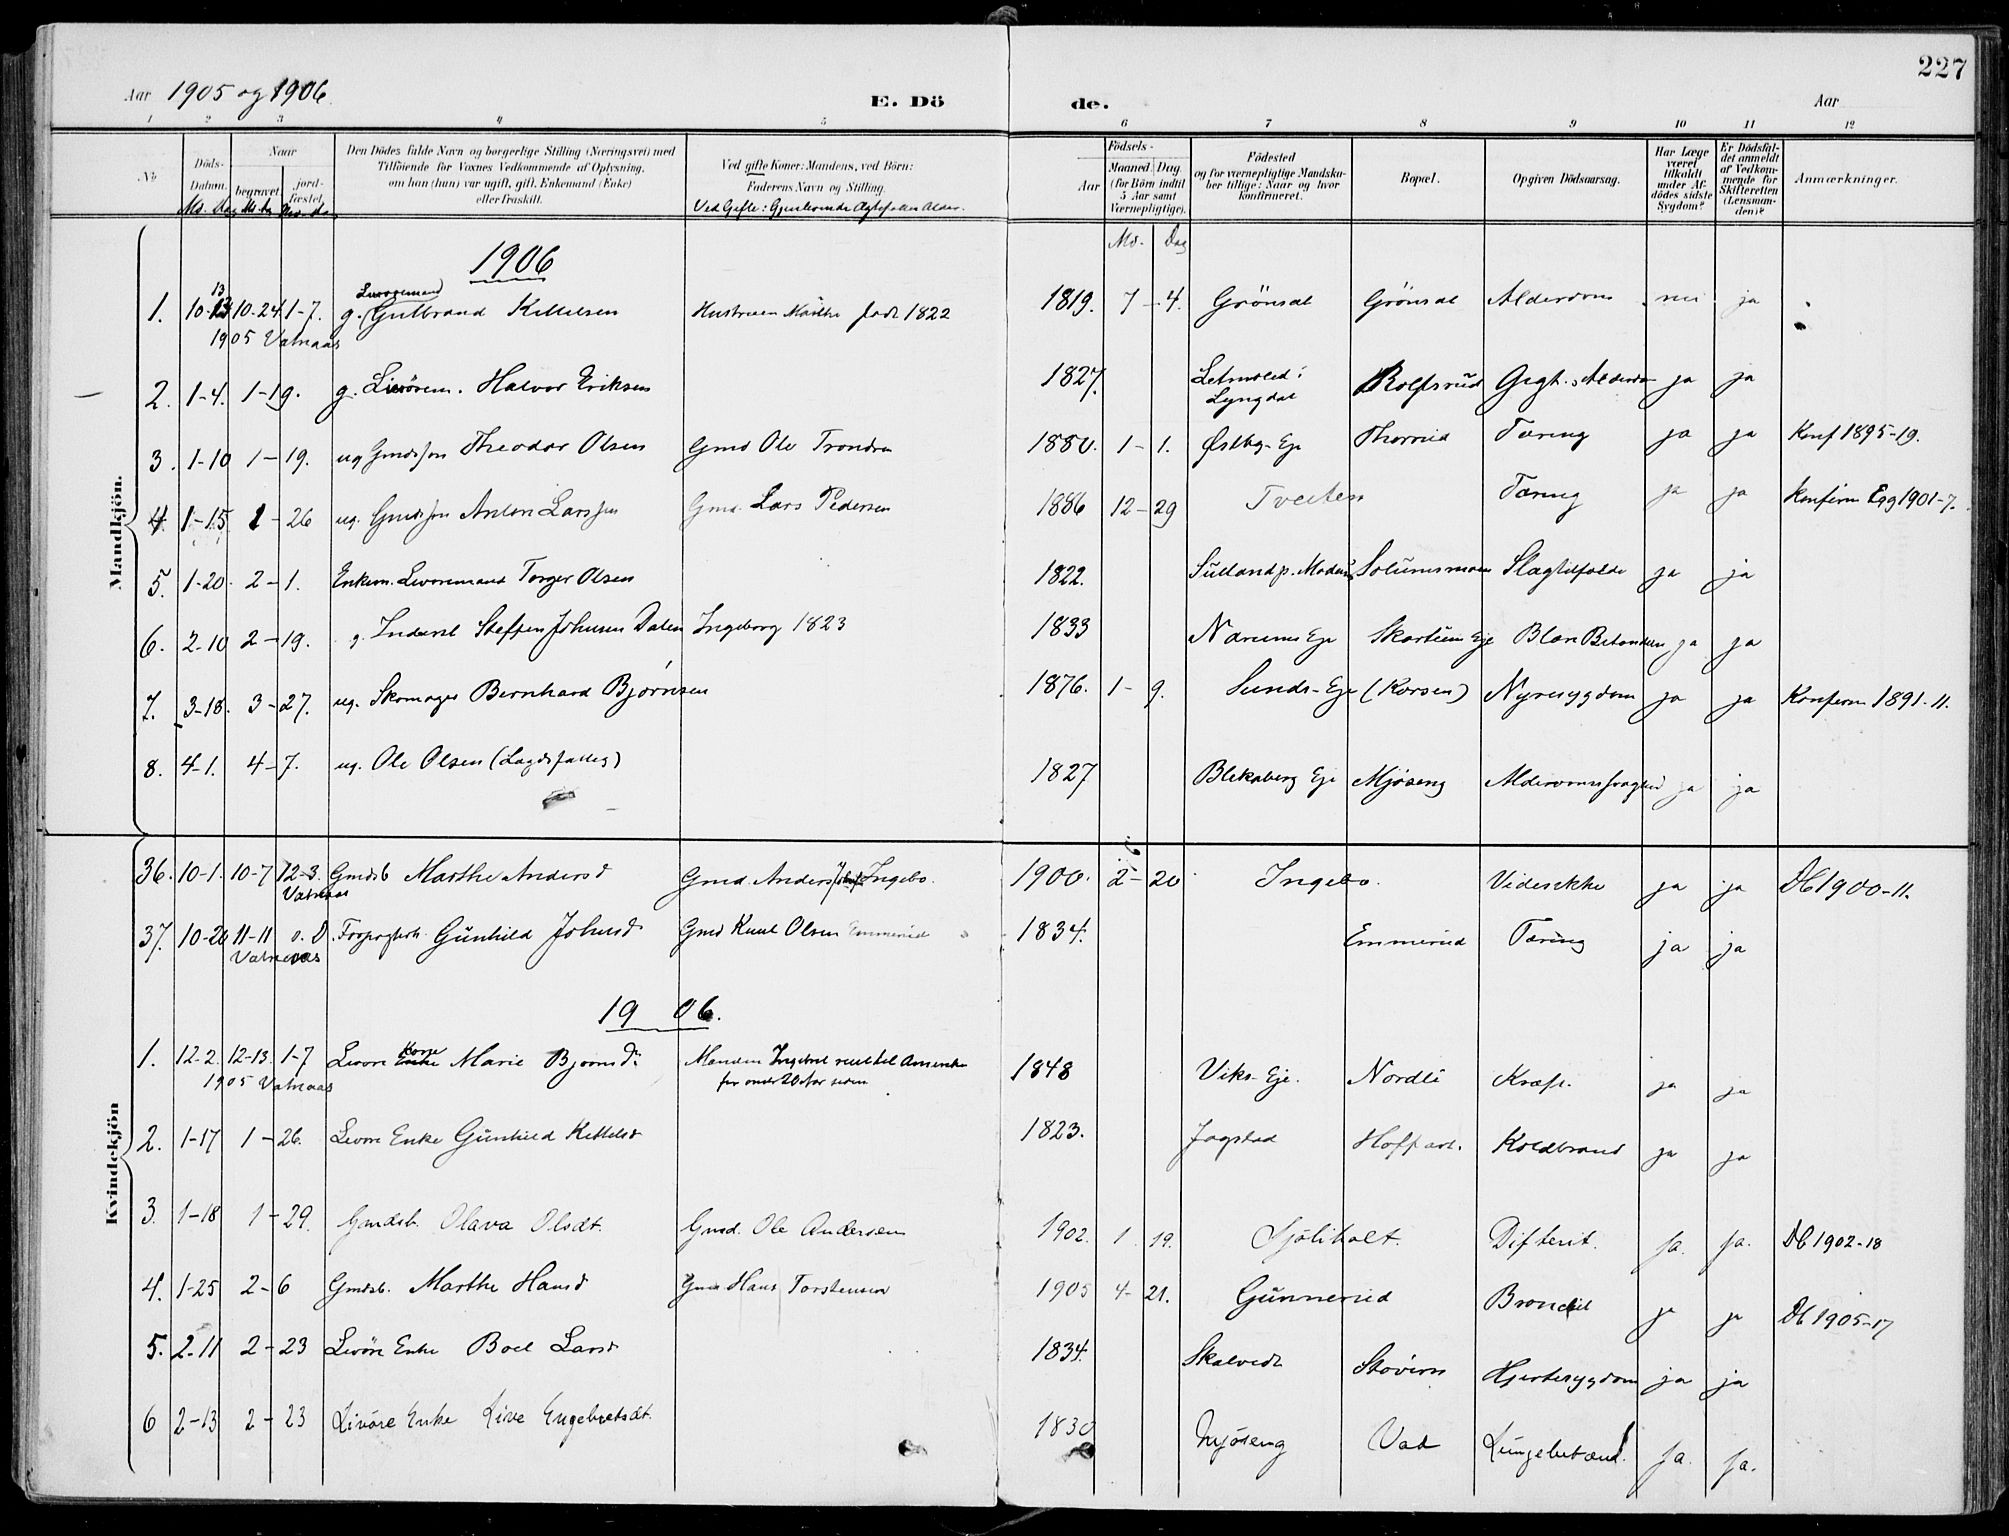 227
Aar 1905 og 1906.
E. Dö de.
Aar
1 2 3 4 5 6 7 8 9 10 11 12
No
Döds-Datum.
Mo. Dag
Naar
begravet. Mo. Da
jord-fæstet. Mo. Da
Den Dödes fulde Navn og borgerlige Stilling (Næringsvei) med
Tilföiende for Voxnes Vedkommende af Oplysning.
om han (hun) var ugift, gift, Enkemand (Enke)
eller Fraskilt.
Ved gifte Koner: Mandens, ved Börn:
Faderens Navn og Stilling.
Ved Gifte: Gjenlevende Ægtefælles Alder.
Födsels-
Aar
Maaned Dag
(for Börn indtil
5 Aar samt
Værnepligtige).
Födested
og for værnepligtige Mandska-
ber tillige: Naar og hvor
konfirmeret.
Bopæl.
Opgiven Dödsaarsag.
Har Læge
været
tilkaldt
under Af-
dödes sidste
Sygdom?
Er Dödsfal-
det anmeldt
af Vedkom-
mende for
Skifteretten
(Lensman-
den)?
Anmærkninger.
Mo. Dag
Mandkjön.
1906
1. 10-13 13 10-24 1-7. g. Gulbrand Kittelsen Hustruen Marthe født 1822 1819. 7-4. Grönsal Grönsal Alderdom nei ja
1905 Vatnaas
2. 1-4. 1-19. g. Halvor Eriksen 1827. Lyngdal Rolfsrud Gigt. Alderdom ja ja
3. 1-10 1-19. ug Gmdssøn Theodor Olsen Gmd Ole Trondsen 1880. 1-1. Østbg-Eje Thorrud Tæring ja ja Konf 1895-19.
4. 1-15. 1-26 ug. Gmdssøn Anton Larssen Gmd. Lars Pedersen 1886 12-29 Tveiten Tæring ja ja Konfirm Egg 1901-7.
5. 1-20. 2-1. Enkem. Torger Olsen 1822. Solumsmoen Slagtilfælde ja ja
6. 2-10 2-19. g. Inderst Steffen Johnsen Dalen Ingeborg 1823 1833 Nærums Eje Skartum Eje ja ja
7. 3-18. 3-27. ug. Skomager Bernhard Bjørnsen 1876. 1-9. Sunds-Eje (Korsen) Nyresygdom ja ja Konfirm 1891-11.
8. 4-1. 4-7. ug. Ole Olsen (Lagdsfattig) 1827 Blekaberg Eje Mjöseng Alderdomssvaghed ja ja
Kvindekjön
36. 10-1. 10-7 12-3. Gmdsb Marthe Andersd Gmd. Anders Ingebo. 1900. 2-20 Ingebo. ja ja Db 1900-11.
Vatnaas
37. 10-20 11-11 s. D. Gunhild Johnsd Gmd Knut Olsen Emmerud 1834. Emmerud Tæring ja ja
Vatnaas
1906.
1. 12-2. 12-13. 1-7 Kone Marie Bjørnsd: Manden Ingebret reist til Amerika 1848 Viks-Eje. Nordli Kræft. ja ja
1905 Vatnaas for omtr 20 Aar siden
2. 1-17 1-26. Enke Gunhild Kittelsd 1823. Jogstad Koldbrand ja ja
3. 1-18 1-29. Gmdsb. Olava Olsdt. Gmd. Ole Andersen 1902. 1. 19. Sjöliholt. Difterit. ja. ja. Db 1902-18
4. 1-25 2-6 Gmdsb. Marthe Hansd Gmd Hans Torstensen 1905 4-21. Gunnerud ja ja Db 1905-17
5. 2-11 2-23 Enke Boel Larsd 1834. Skalvedt Stovern Hjertesygdom ja ja
6 2-13 2-23 Enke Live Engebretsdt. 1830 Mjöseng Vad Lungebetænd. ja. ja.